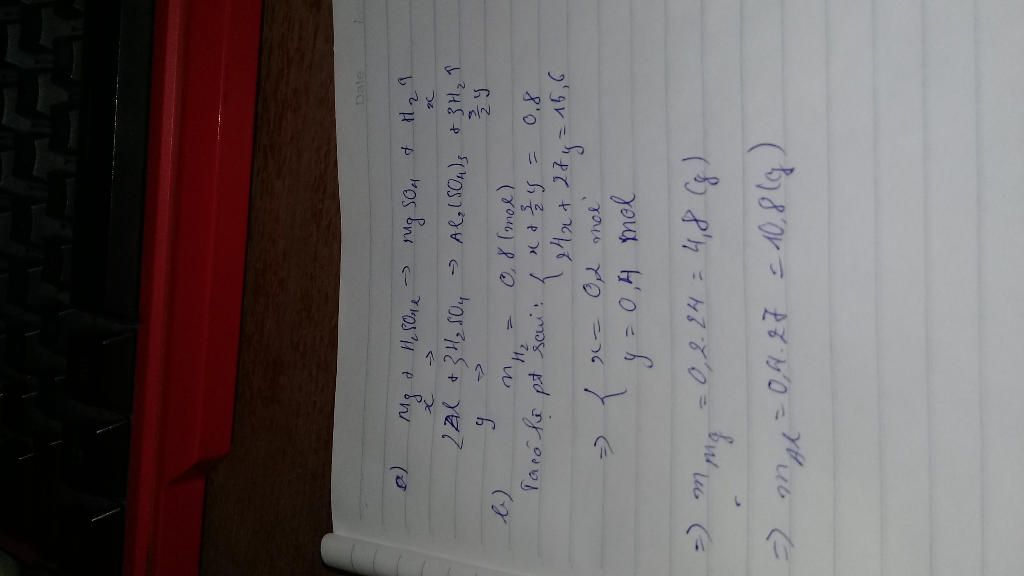 Date
a) Mg + H₂SO₄ → MgSO₄ + H₂↑
x → x
2Al + 3H₂SO₄ → Al₂(SO₄)₃ + 3H₂↑
y → 3/2 y
b) nH₂ = 0,8 (mol)
Ta có hệ pt sau: { x + 3/2 y = 0,8
24x + 27y = 15,6
=> { x = 0,2 mol
y = 0,4 mol
=> mMg = 0,2.24 = 4,8 (g)
=> mAl = 0,4.27 = 10,8 (g)